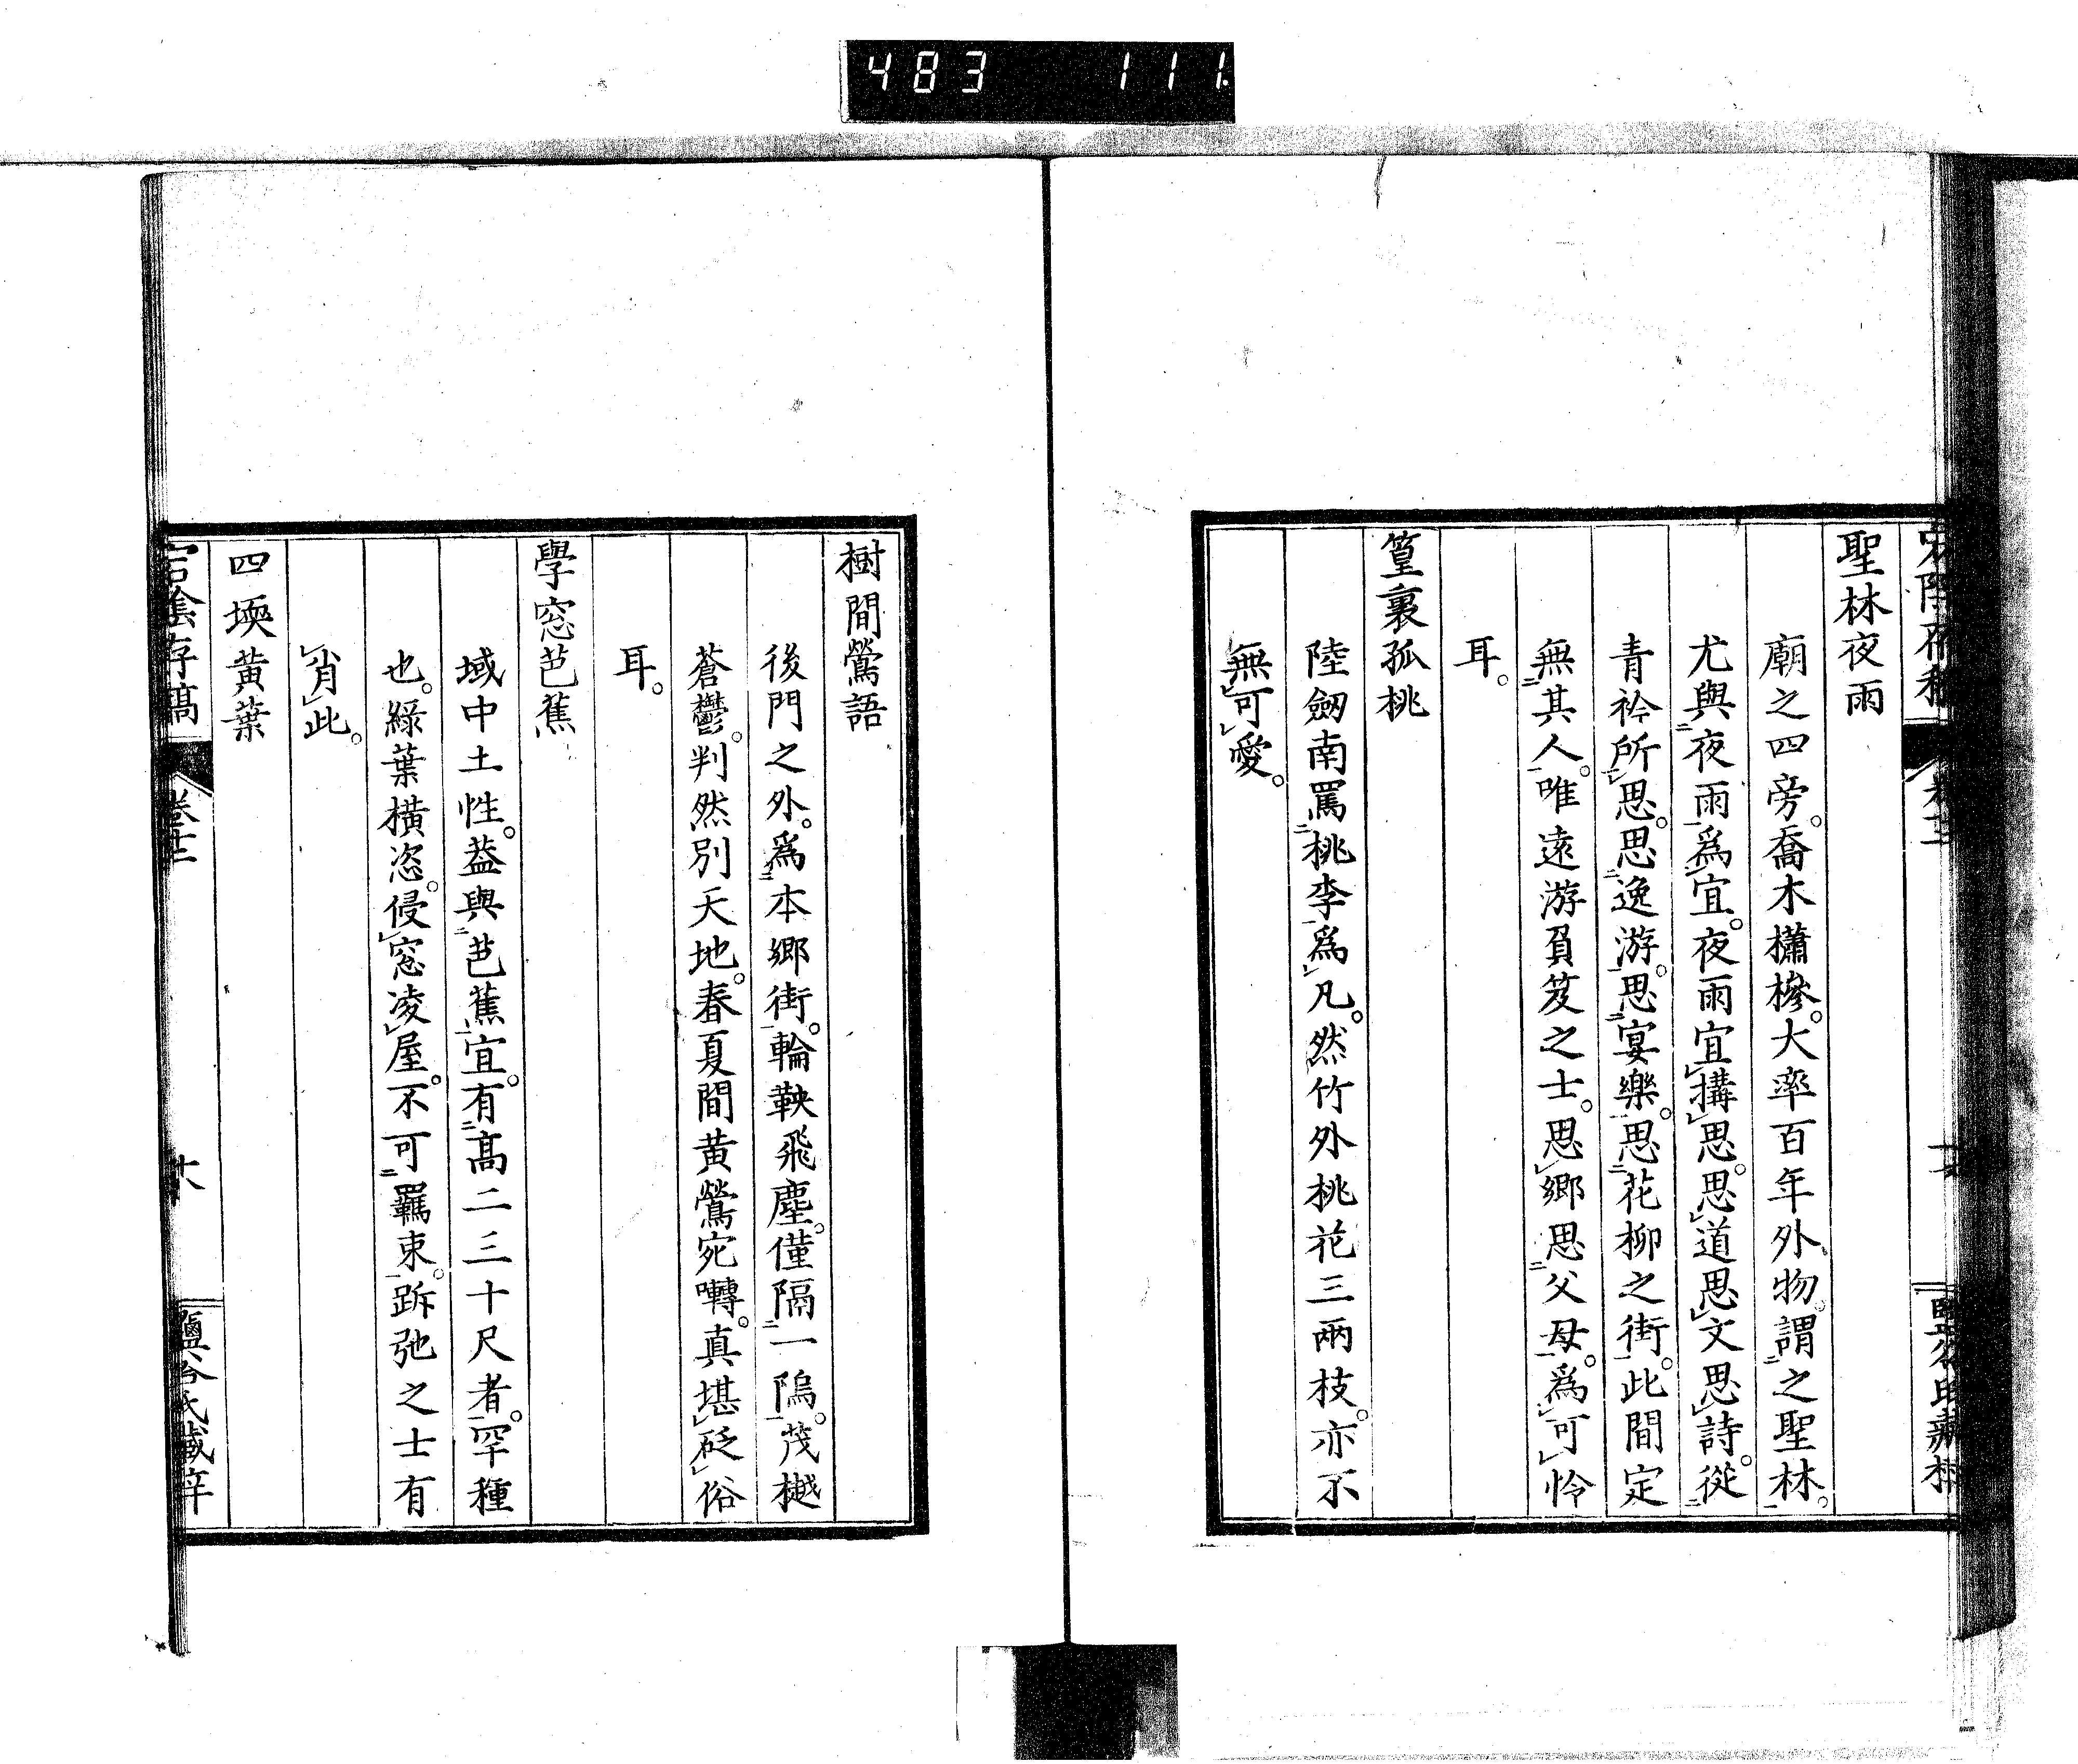 483 111
聖林夜雨
廟之四旁。喬木櫹槮。大率百年外物。謂之聖林。
尤與夜雨爲宜。夜雨宜搆思。思道思文思詩。從
青衿所思。思逸游。思宴樂。思花柳之街。此間定
無其人。唯遠游負笈之士。思鄉思父母。爲可怜
耳。
篁裏孤桃
陸劒南罵桃李爲凡。然竹外桃花三兩枝。亦不
無可愛。
樹間鶯語
後門之外。爲本鄉街。輪鞅飛塵。僅隔一隖。茂樾
蒼鬱。判然別天地。春夏間黃鶯宛囀。真堪砭俗
耳。
學窓芭蕉
域中土性。葢與芭蕉宜。有高二三十尺者。罕種
也。綠葉橫恣。侵窓凌屋。不可羈束。跅弛之士有
肖此。
四堧黃葉
宕陰存稿 卷十二